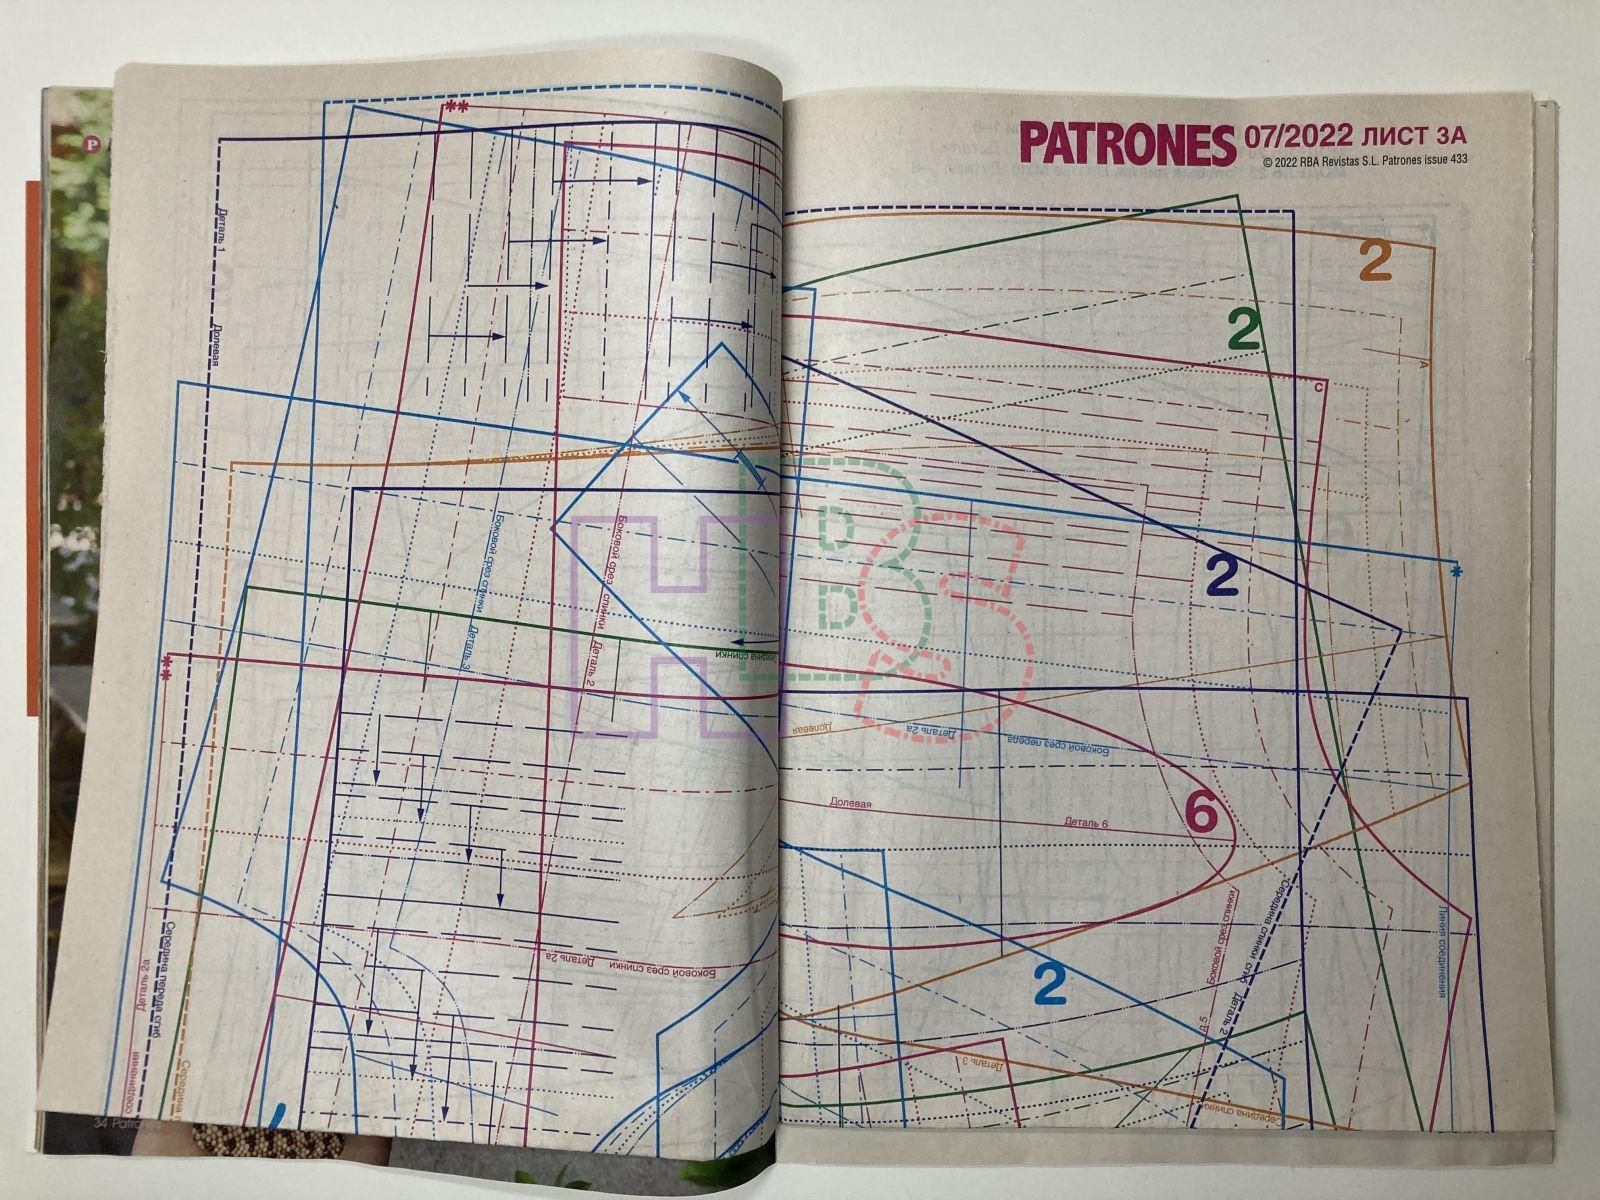 PATRONES 07/2022 ЛИСТ 3А
© 2022 RBA Revistas S.L. Patrones issue 433
P
**
Деталь 1
Долевая
2
2
C
A
Боковой срез спинки
Деталь 3
Боковой срез спинки
Деталь 2
Середина спинки
2
*
**
Долевая
Деталь 2а
Боковой срез переда
Долевая
Деталь 6
6
Боковой срез спинки
Деталь 2а
Середина спинки сгиб
Деталь 2
Боковой срез спинки
Д.5
Линия соединения
2
Деталь 2а
соединения
Середина переда сгиб
Середина
Деталь 3
Середина спинки
34 Patrones